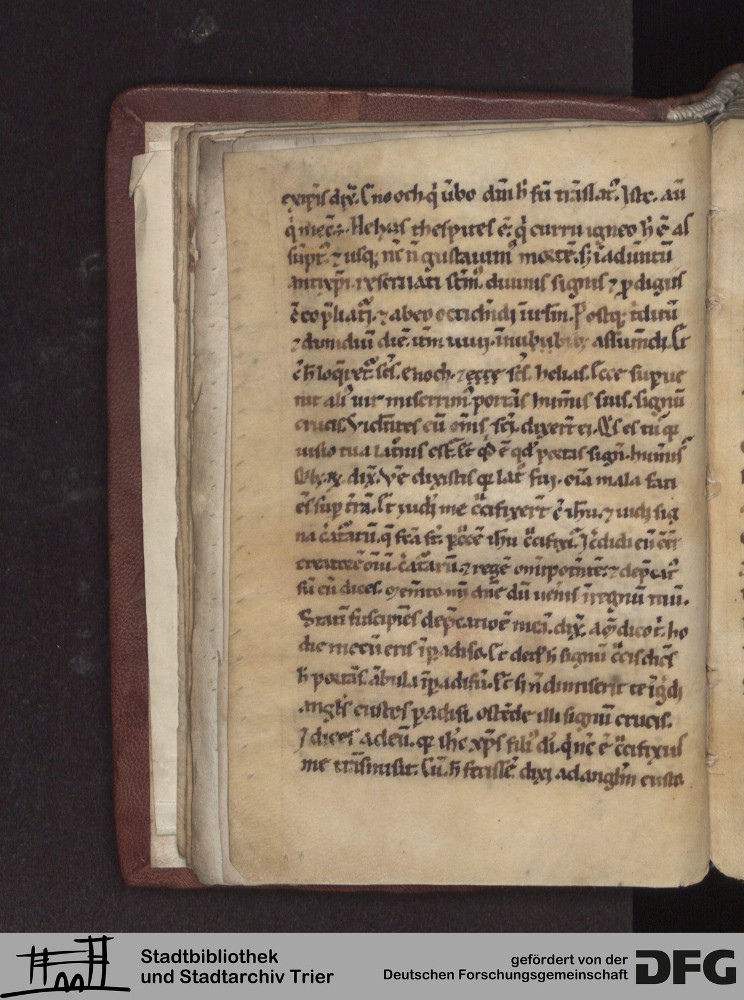 dix. Enoch q̇ ůbo dn̄i h̄ sū trāslatꝰ. Iste. aū
q̇ mecū ÷. Helyas thesbites ē. q̇ curru igneo h̄ ē as
sūptꝰ. ⁊ usq; nc̄ n̄ gustauimꝰ mortē. s; ī aduntū
antixp̄i reseruati sumꝰ. diuinis signis ⁊ ꝓdigiis
⁊ ab eo occidndi ī irl̄m. Postq; t̓duū
⁊ dimidiū diē. itm̄ uiui. ī nubibus assumdi. Et
h̄ loq̄ret̓. enoch. ⁊ helias. Ecce supue
nit aliꝰ uir miserrimꝰ. portās humis suis. signū
crucis. Vidntes eū oms̄ sc̄i. dixert̄ ei. Qs es tu q̄
uisio tua latnis est. Et qd̄ ē qd̄ portas signū. humis
dix. Vē dixistis q̄ lat̓ fui. om̄a mala faci
ens sup t̓rā. Et iudi me c̄cifixert̄ c̄ ihu. ⁊ uidi sig
na c̓at̓arū. q̄ fc̄a st̄. p c̓cē ihu c̄cifixi. ⁊ c̓didi eū ee̓
creatorē omiū. c̓at̓arū. ⁊ regē omipotntē. ⁊ dep̄cat̓
sū eū dices. memto mi dn̄e dū uenis in regnū tuū.
Statī suscipiēs dep̄catiōē meā. dix. am̄ dico t̓. ho
die mecū eris ī padiso. Et dedit h̄ signū c̄cis dicēs
h̄ portās. ābula ī padisū. Et si n̄ dimiserit te īg̓di
angls̄ custos padisi. ostēde illi signū crucis.
⁊ dices ad eū. q̄ ihc̄ xps̄ filiꝰ di. q̇ nc̄ ē c̄cifixus
me trāsmisit. Cū h̄ fecissē dixi ad anglm̄ custo
Stadtbibliothek
und Stadtarchiv Trier
gefördert von der
Deutschen Forschungsgemeinschaft
DFG